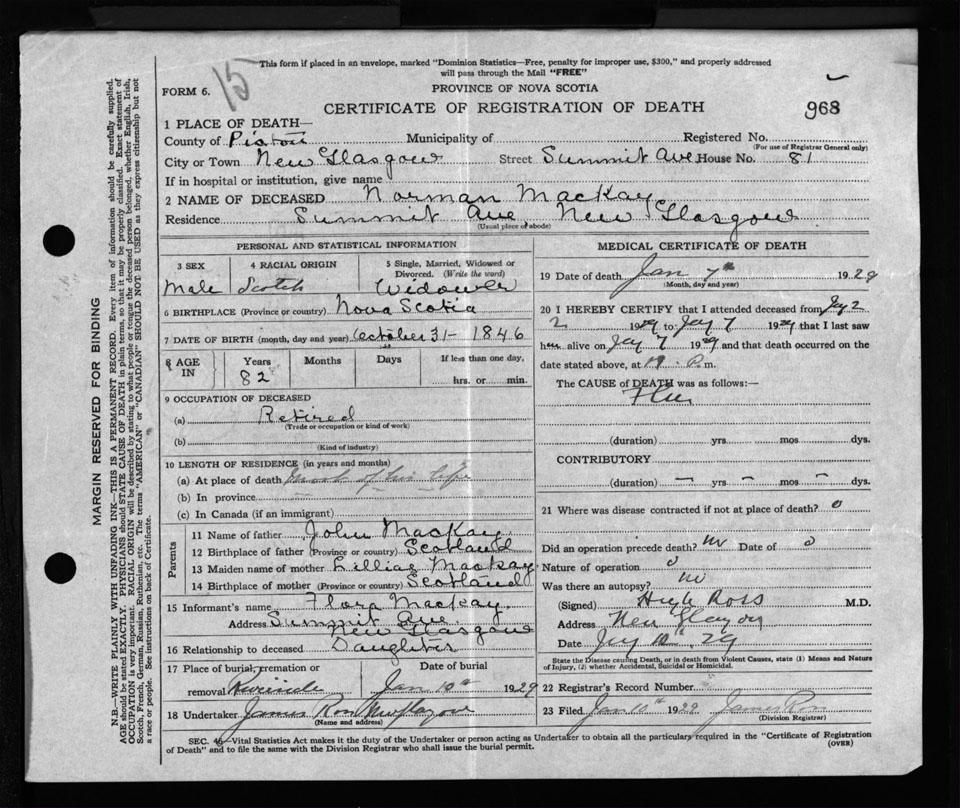 This form if placed in an envelope, marked "Dominion Statistics—Free, penalty for improper use, $300," and properly addressed
will pass through the Mail "FREE"
FORM 6.
15
PROVINCE OF NOVA SCOTIA
CERTIFICATE OF REGISTRATION OF DEATH
968
1 PLACE OF DEATH—
County of Pictou Municipality of Registered No.
(For use of Registrar General only)
City or Town New Glasgow Street Summit Ave House No. 81
If in hospital or institution, give name
2 NAME OF DECEASED Norman MacKay
Residence Summit Ave, New Glasgow
(Usual place of abode)
PERSONAL AND STATISTICAL INFORMATION
3 SEX 4 RACIAL ORIGIN 5 Single, Married, Widowed or Divorced. (Write the word)
Male Scotch Widower
6 BIRTHPLACE (Province or country) Nova Scotia
7 DATE OF BIRTH (month, day and year) October 31 - 1846
8 AGE IN Years Months Days If less than one day,
82 hrs. or min.
9 OCCUPATION OF DECEASED
(a) Retired
(Trade or occupation or kind of work)
(b)
(Kind of industry)
10 LENGTH OF RESIDENCE (in years and months)
(a) At place of death most of his life
(b) In province
(c) In Canada (if an immigrant)
Parents
11 Name of father John MacKay
12 Birthplace of father (Province or country) Scotland
13 Maiden name of mother Lillias MacKay
14 Birthplace of mother (Province or country) Scotland
15 Informant's name Flora MacKay
Address Summit Ave.
New Glasgow
16 Relationship to deceased Daughter
17 Place of burial, cremation or Date of burial
removal Riverside Jan 10th 1929
18 Undertaker James Ross New Glasgow
(Name and address)
MEDICAL CERTIFICATE OF DEATH
19 Date of death Jan 7th 1929
(Month, day and year)
20 I HEREBY CERTIFY that I attended deceased from 2
2 1929 to 7 1929 that I last saw
him alive on 7 1929 and that death occurred on the
date stated above, at P.m.
The CAUSE of DEATH was as follows:—
Flu
(duration) yrs mos dys.
CONTRIBUTORY
(duration) — yrs — mos — dys.
21 Where was disease contracted if not at place of death? 0
Did an operation precede death? no Date of 0
Nature of operation 0
Was there an autopsy? no
(Signed) Hugh Ross M.D.
Address New Glasgow
Date 10th, 29
State the Disease causing Death, or in death from Violent Causes, state (1) Means and Nature
of Injury, (2) whether Accidental, Suicidal or Homicidal.
22 Registrar's Record Number
23 Filed Jan 11th 1929 James Ross
(Division Registrar)
SEC. 46—Vital Statistics Act makes it the duty of the Undertaker or person acting as Undertaker to obtain all the particulars required in the "Certificate of Registration
of Death" and to file the same with the Division Registrar who shall issue the burial permit.
(OVER)
MARGIN RESERVED FOR BINDING
N.B.—WRITE PLAINLY WITH UNFADING INK—THIS IS A PERMANENT RECORD. Every item of information should be carefully supplied.
AGE should be stated EXACTLY. PHYSICIANS should STATE CAUSE OF DEATH in plain terms, so that it may be properly classified. Exact statement of
OCCUPATION is very important. RACIAL ORIGIN will be described by stating to what people or tongue the deceased person belonged, whether English, Irish,
Scotch, French, German, Russian, Ruthenian, etc. The terms "AMERICAN" or "CANADIAN" SHOULD NOT BE USED as they express citizenship but not
a race or people. See instructions on back of Certificate.